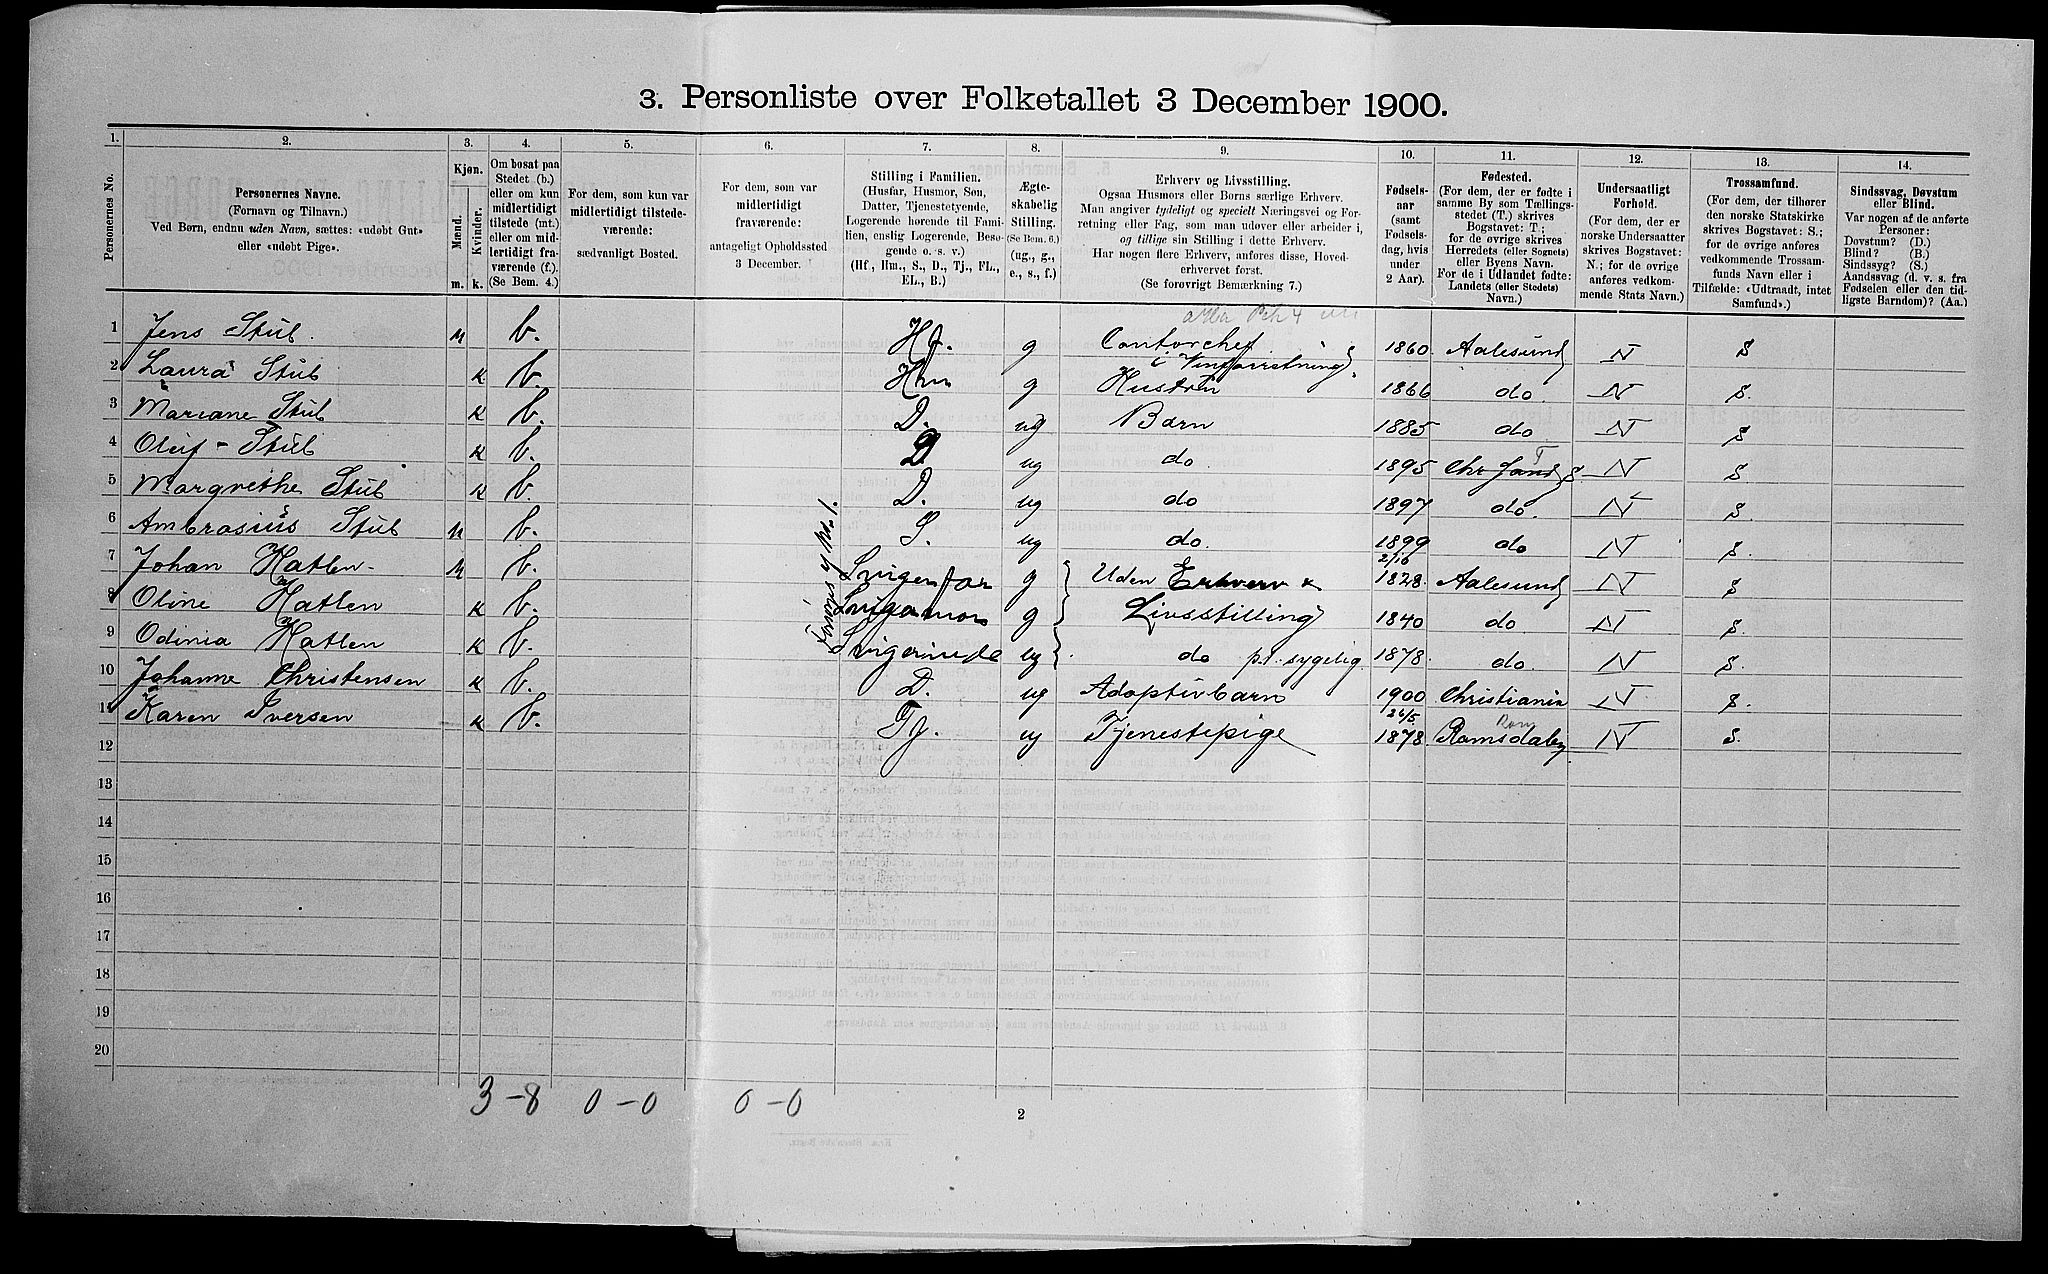 3. Personliste over Folketallet 3 December 1900.
1. 2. 3. 4. 5. 6. 7. 8. 9. 10. 11. 12. 13. 14.
Personernes No.
Personernes Navne.
(Fornavn og Tilnavn.)
Ved Børn, endnu uden Navn, sættes: «udøbt Gut»
eller «udøbt Pige».
Kjøn.
Mænd.
Kvinder.
m. k.
Om bosat paa
Stedet (b.)
eller om kun
midlertidigt
tilstede (mt.)
eller om mid-
lertidigt fra-
værende (f.).
(Se Bem. 4.)
For dem, som kun var
midlertidigt tilstede-
værende:
sædvanligt Bosted.
For dem, som var
midlertidigt
fraværende:
antageligt Opholdssted
3 December.
Stilling i Familien.
(Husfar, Husmor, Søn,
Datter, Tjenestetyende,
Logerende hørende til Fami-
lien, enslig Logerende, Besø-
gende o. s. v.)
(Hf., Hm., S., D., Tj., FL.,
EL., B.)
Ægte-
skabelig
Stilling.
(Se Bem. 6.)
(ug., g.,
e., s., f.)
Erhverv og Livsstilling.
Ogsaa Husmors eller Børns særlige Erhverv.
Man angiver tydeligt og specielt Næringsvei og For-
retning eller Fag, som man udøver eller arbeider i,
og tillige sin Stilling i dette Erhverv.
Har nogen flere Erhverv, anføres disse, Hoved-
erhvervet først.
(Se forøvrigt Bemærkning 7.)
Fødsels-
aar
(samt
Fødsels-
dag, hvis
under
2 Aar).
Fødested.
(For dem, der er fødte i
samme By som Tællings-
stedet (T.) skrives
Bogstavet: T.;
for de øvrige skrives
Herredets (eller Sognets)
eller Byens Navn.
For de i Udlandet fødte:
Landets (eller Stedets)
Navn.)
Undersaatligt
Forhold.
(For dem, der er
norske Undersaatter
skrives Bogstavet:
N.; for de øvrige
anføres vedkom-
mende Stats Navn.)
Trossamfund.
(For dem, der tilhører
den norske Statskirke
skrives Bogstavet: S.;
for de øvrige anføres
vedkommende Trossam-
funds Navn eller i
Tilfælde: «Udtraadt, intet
Samfund».)
Sindssvag, Døvstum
eller Blind.
Var nogen af de anførte
Personer:
Døvstum? (D.)
Blind? (B.)
Sindssyg? (S.)
Aandssvag (d. v. s. fra
Fødselen eller den tid-
ligste Barndom)? (Aa.)
1 Jens Stub. m b. Hf. g Contorchef i Vinforretning 1860. Aalesund N S
2 Laura Stub k b. Hm g Hustru 1866 do. N S.
3 Mariane Stub k b. D. ug Barn 1885 do N S
4 Oluf - Stub k b. D ug do. 1895 Chr Sand S. T N S
5 Margrethe Stub k b. D. ug do 1897 do. N S.
6 Ambrosius Stub m b. S. ug do. 1899 2/16 do N S.
7 Johan Hatlen- m b. Svigerfar g Uden Erhverv & 1828. Aalesund N S
8 Oline Hatlen k b. Svigermor g Livsstilling 1840 do N S.
9 Odinia Hatlen k b. Svigerinde ug do pt. sygelig. 1878. do. N S.
Forsørges af No 1.
10 Johanne Christensen k b. D. ug Adoptivbarn 1900 26/5 Christiania N S.
11 Karen Iversen k b. Tj. ug Tjenestepige 1878 Romsdalen N S.
12
13
14
15
16
17
18
19
20
3 - 8 0 - 0 0 - 0
2